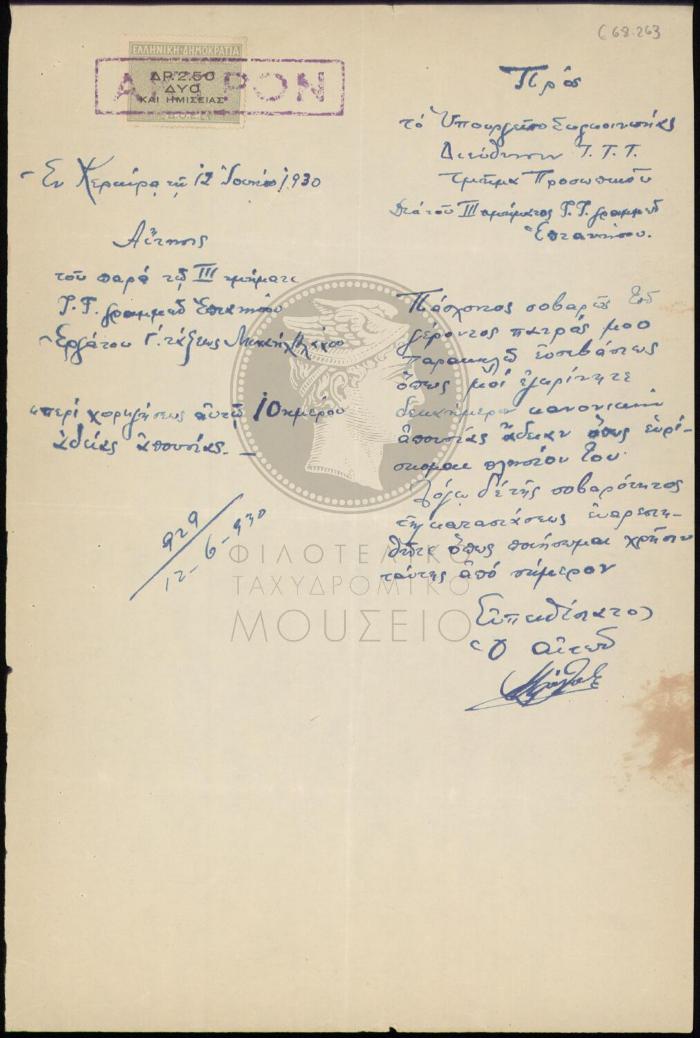 C 68.263
ΕΛΛΗΝΙΚΗ ΔΗΜΟΚΡΑΤΙΑ
ΔΡ 2.50
ΔΥΟ
ΚΑΙ ΗΜΙΣΕΙΑΣ
Πρὸς
τὸ Ὑπουργεῖο Συγκοινωνίας
Διεύθυνσιν Τ.Τ.Τ.
Τμῆμα Προσωπικοῦ
Διὰ τοῦ ΙΙΙ τμήματος Τ.Τ. γραμμῶν
Ἑπτανήσου.
Ἐν Κερκύρᾳ τῇ 12 Ἰουνίου 1930
Αἴτησις
τοῦ παρὰ τῷ ΙΙΙ τμήματι
Τ.Τ. γραμμῶν Ἑπτανήσου
Ἐργάτου Γ΄ τάξεως
"περὶ χορηγήσεως αὐτῷ 10ημέρου
ἀδείας ἀπουσίας._
929
12-6-930
Πάσχοντος σοβαρῶς τοῦ
γέροντος πατρός μου
παρακαλῶ εὐσεβάστως
ὅπως μοὶ ἐγκρίνητε
δεκαήμερον κανονικὴν
ἀπουσίας ἄδειαν ὅπως εὑρί-
σκομαι πλησίον του.
Λόγῳ δὲ τῆς σοβαρότητος
τῆς καταστάσεως εὐαρεστη-
θῆτε ὅπως ποιήσωμαι χρῆσιν
ταύτης ἀπὸ σήμερον
Εὐπειθέστατος
Ὁ αἰτῶν
ΦΙΛΟΤΕΛΙΚΟ
ΤΑΧΥΔΡΟΜΙΚΟ
ΜΟΥΣΕΙΟ